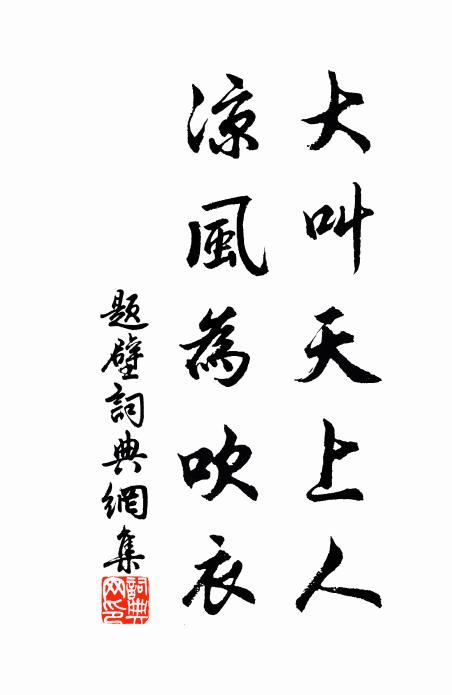 大叫天上人
凉風為吹衣
題壁詞典網集
詞典網印